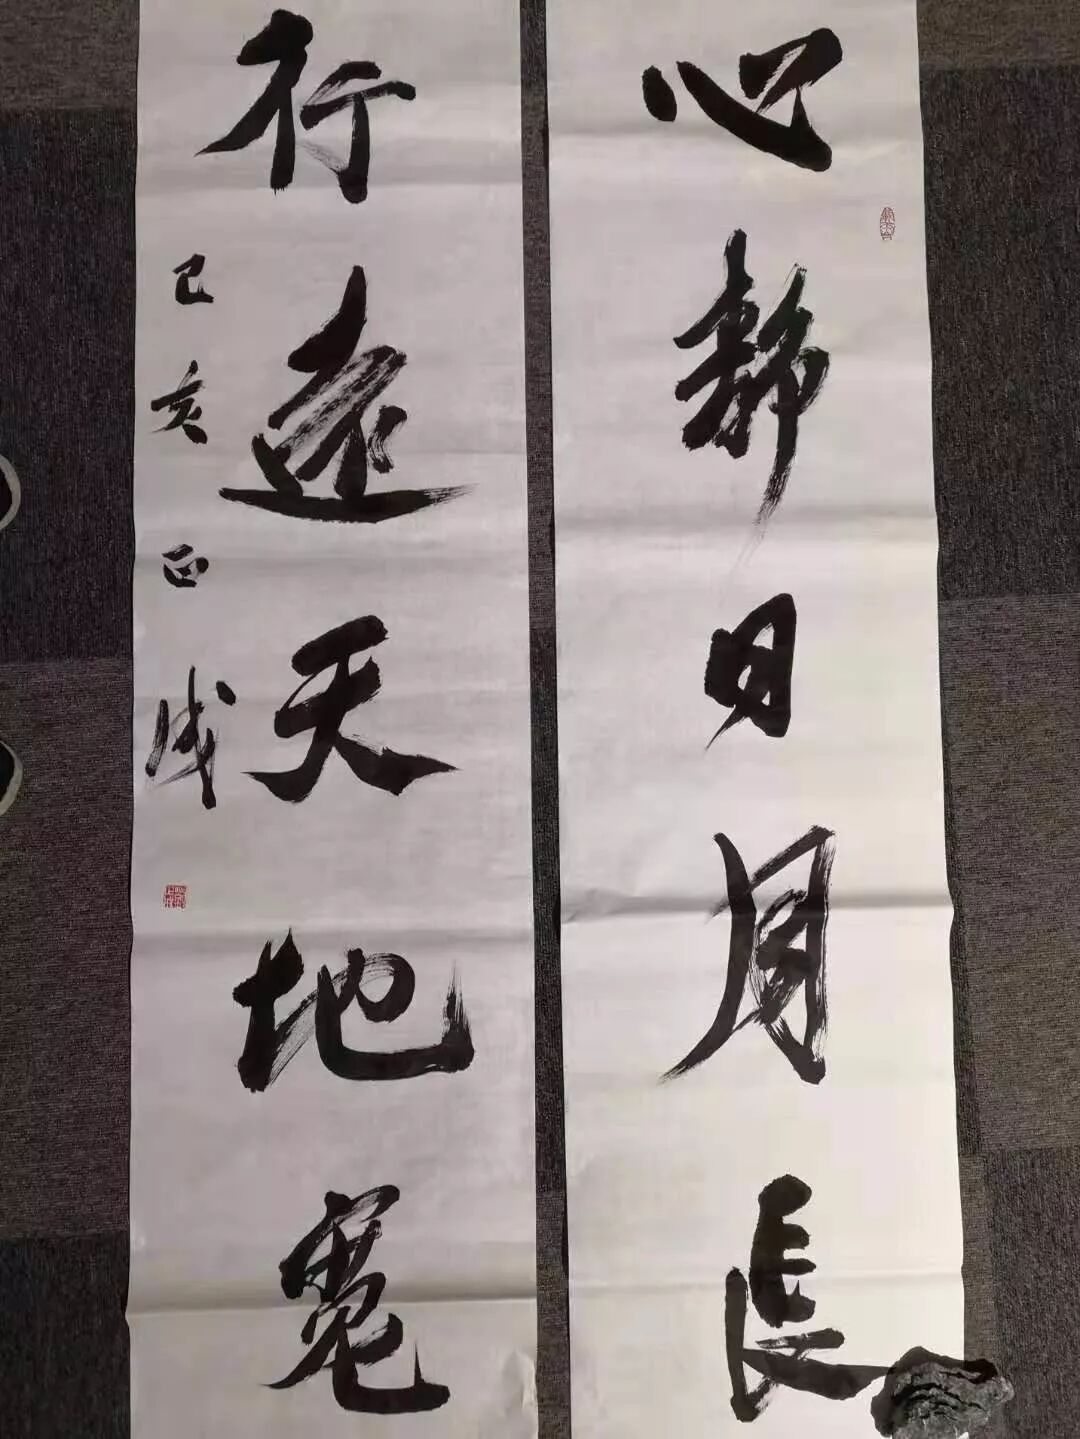 心静日月長
行遠天地寬
己亥 正成